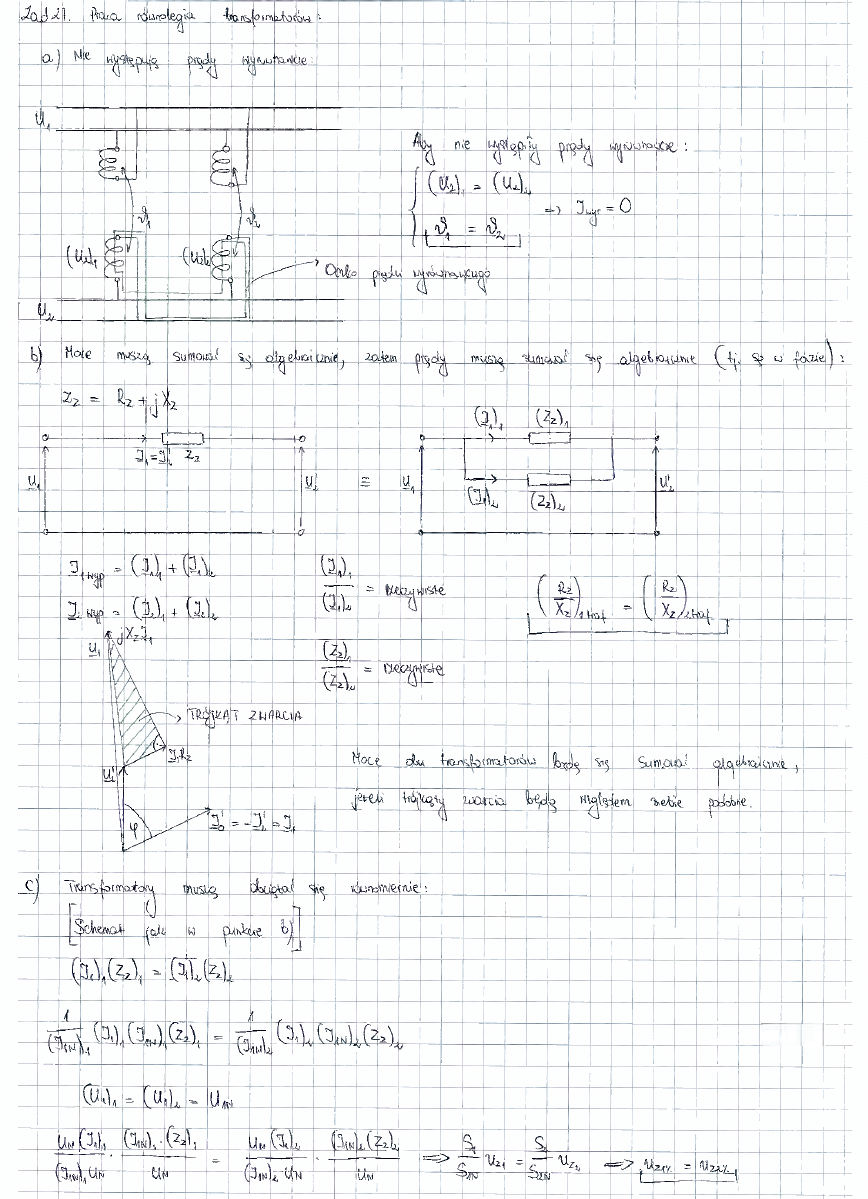 Zad 21. Praca równoległa transformatorów:
a) Nie występują prądy wyrównawcze:
U₁
ϑ₁
ϑ₂
(U₂)₁
(U₂)₂
U₂
Aby nie wystąpiły prądy wyrównawcze:
(U₂)₁ = (U₂)₂
ϑ₁ = ϑ₂
=> I_wyr = 0
Oczko prądu wyrównawczego
b) Moce muszą sumować się algebraicznie, zatem prądy muszą sumować się algebraicznie (tj. są w fazie):
Z_z = R_z + jX_z
I₁=I₂' Z_z
U₁ U₂'
≡
(I₁)₁ (Z_z)₁
U₁ U₂'
(I₁)₂ (Z_z)₂
I₁wyp = (I₁)₁ + (I₁)₂
I₂wyp = (I₂)₁ + (I₂)₂
(I₁)₁ / (I₁)₂ = rzeczywiste
(Z_z)₁ / (Z_z)₂ = rzeczywiste
(R_z / X_z)₁traf = (R_z / X_z)₂traf
U₁ jX_zI₁
TRÓJKĄT ZWARCIA
I₁R_z
U₂'
φ
I₀' = -I₂' = I₁
Moce dwu transformatorów będą się sumować algebraicznie,
jeżeli trójkąty zwarcia będą względem siebie podobne.
c) Transformatory muszą obciążać się równomiernie:
[Schemat jak w punkcie b)]
(I₁)₁(Z_z)₁ = (I₁)₂(Z_z)₂
1/(I₁N)₁ (I₁)₁(I₁N)₁(Z_z)₁ = 1/(I₁N)₂ (I₁)₂(I₁N)₂(Z_z)₂
(U₁)₁ = (U₁)₂ = U₁N
U_N(I₁)₁/(I₁N)₁U_N · (I₁N)₁·(Z_z)₁/U_N = U_N(I₁)₂/(I₁N)₂U_N · (I₁N)₂(Z_z)₂/U_N => S₁/S₁N u_z₁ = S₂/S₂N u_z₂ => u_z1% = u_z2%